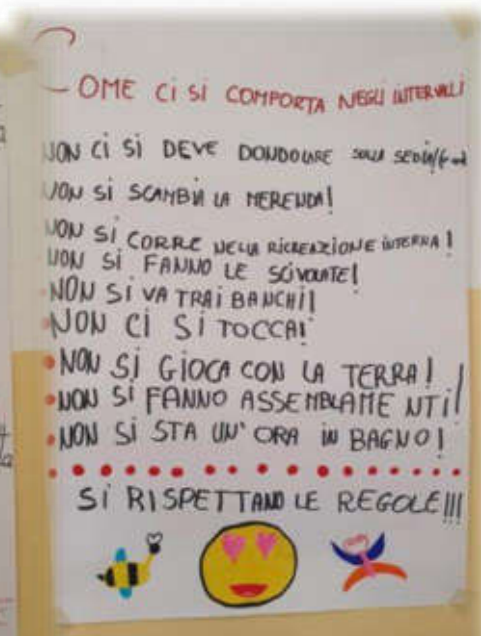 COME CI SI COMPORTA NEGLI INTERVALLI
NON CI SI DEVE DONDOLARE SULLA SEDIA
NON SI SCAMBIA LA MERENDA!
NON SI CORRE NELLA RICREAZIONE INTERNA!
NON SI FANNO LE SCIVOLATE!
NON SI VA TRAI BANCHI!
NON CI SI TOCCA!
NON SI GIOCA CON LA TERRA!
NON SI FANNO ASSEMBLAMENTI!
NON SI STA UN'ORA IN BAGNO!
SI RISPETTANO LE REGOLE!!!